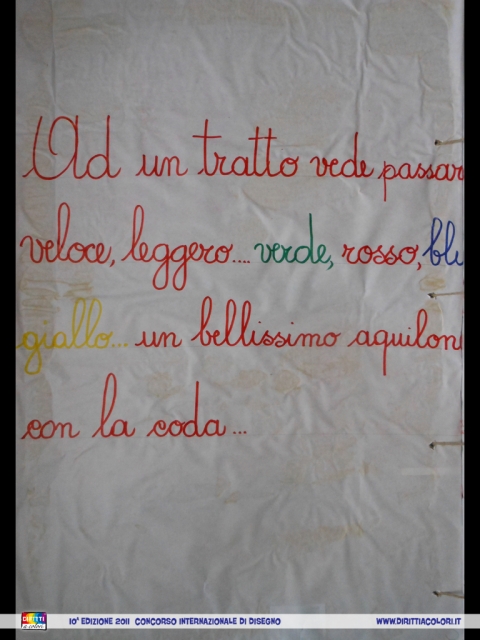 Ad un tratto vede passar
veloce, leggero.... verde, rosso, blu
giallo... un bellissimo aquilon
con la coda...
DIRITTI a colori
10ª EDIZIONE 2011 CONCORSO INTERNAZIONALE DI DISEGNO
WWW.DIRITTIACOLORI.IT